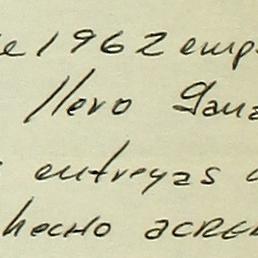 de 1962 emp
llevo Gana
entregas
hecho acre